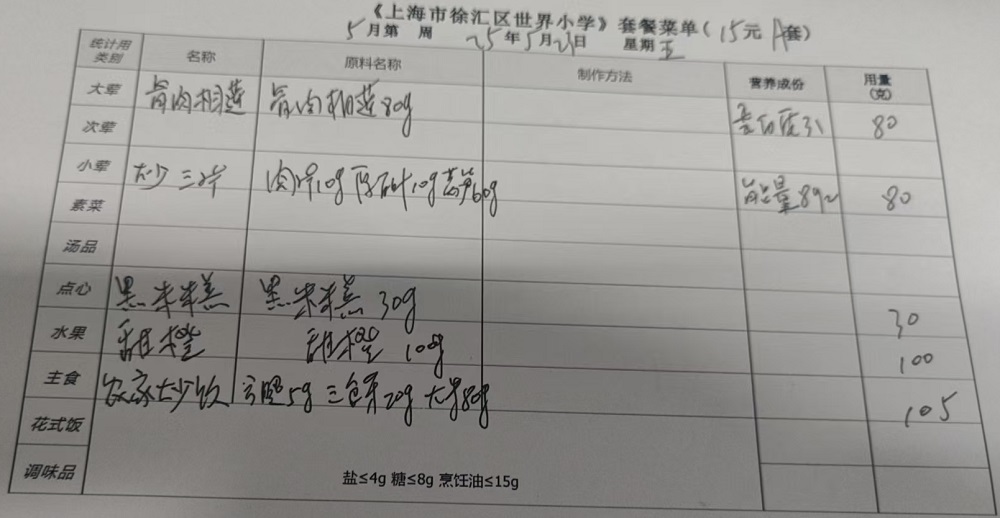 《上海市徐汇区世界小学》套餐菜单（15元A套）
5月第 周 25年5月23日 星期五
统计用类别 名称 原料名称 制作方法 营养成份 用量（克）
大荤 骨肉相莲 骨肉相莲80g 蛋白质31 80
次荤
小荤 炒三片 肉片10g 10g 莴笋60g 能量892 80
素菜
汤品
点心 黑米糕 黑米糕 30g 30
水果 甜橙 甜橙 100g 100
主食 农家炒饭 方腿5g 三色菜20g 大米80g 105
花式饭
调味品 盐≤4g 糖≤8g 烹饪油≤15g